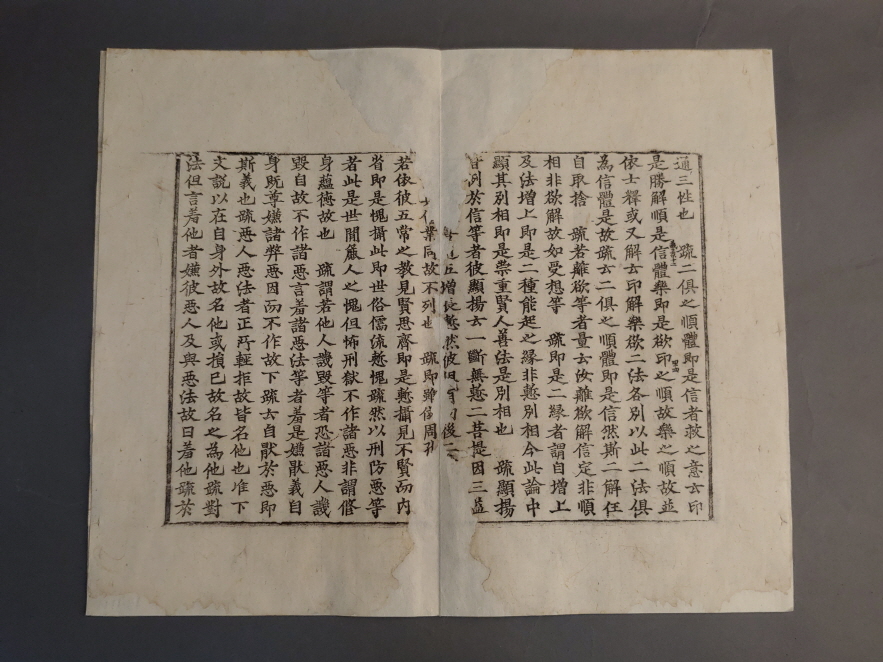 通三性也 疏二俱之順體即是信者救之意云印
是勝解順是信體樂即是欲印之順故樂之順故並
依士釋或又解云印解樂欲二法各別以此二法俱
為信體是故疏云二俱之順體即是信然斯二解任
自取捨 疏若離欲等者量云汝離欲解信定非順
相非欲解故如受想等 疏即是二緣者謂自增上
及法增上即是二種能起之緣非慙別相今此論中
顯其別相即是崇重賢人善法是別相也 疏顯揚
例於信等者彼顯揚云一斷無慙二菩提因三益
五增長慙然彼
業同故不列也 疏即雖周孔
若依彼五常之教見賢思齊即是慙攝見不賢而內
省即是愧攝此即世俗儒流慙愧疏然以刑防惡等
者此是世間麁人之愧但怖刑獄不作諸惡非謂修
身蘊德故也 疏謂若他人譏毀等者恐諸惡人譏
毀自故不作諸惡言羞諸惡法等者羞是嫌猒義自
身既尊嫌諸弊惡因而不作故下疏云自猒於惡即
斯義也疏惡人惡法者正丐輕拒故皆名他也准下
文說以在自身外故名他或損己故名之為他疏對
法但言羞他者嫌彼惡人及與惡法故曰羞他疏於